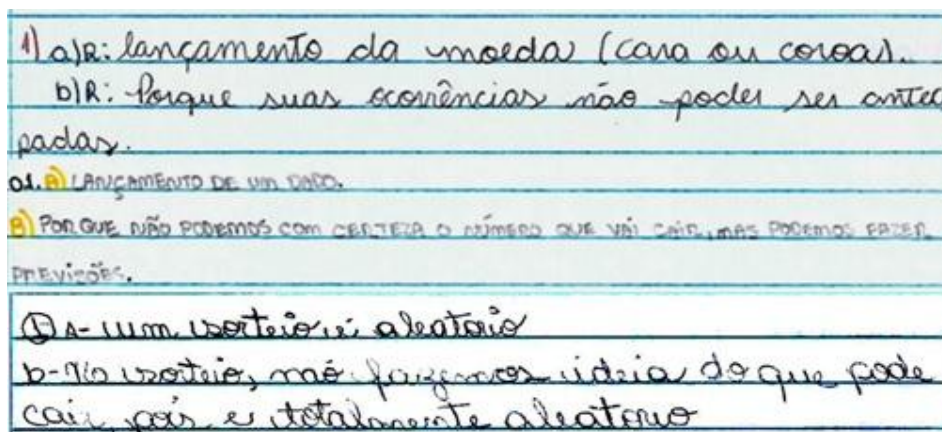 1) a) R: lançamento da moeda (cara ou coroa).
b) R: Porque suas ocorrências não poder ser antec
padas.
01. A) LANÇAMENTO DE UM DADO.
B) PORQUE NÃO PODEMOS COM CERTEZA O NÚMERO QUE VAI CAIR, MAS PODEMOS FAZER
PREVIZÕES.
1) A- um sorteio é aleatorio
b- No sorteio, não fazemos ideia do que pode
cair pois e totalmente aleatorio